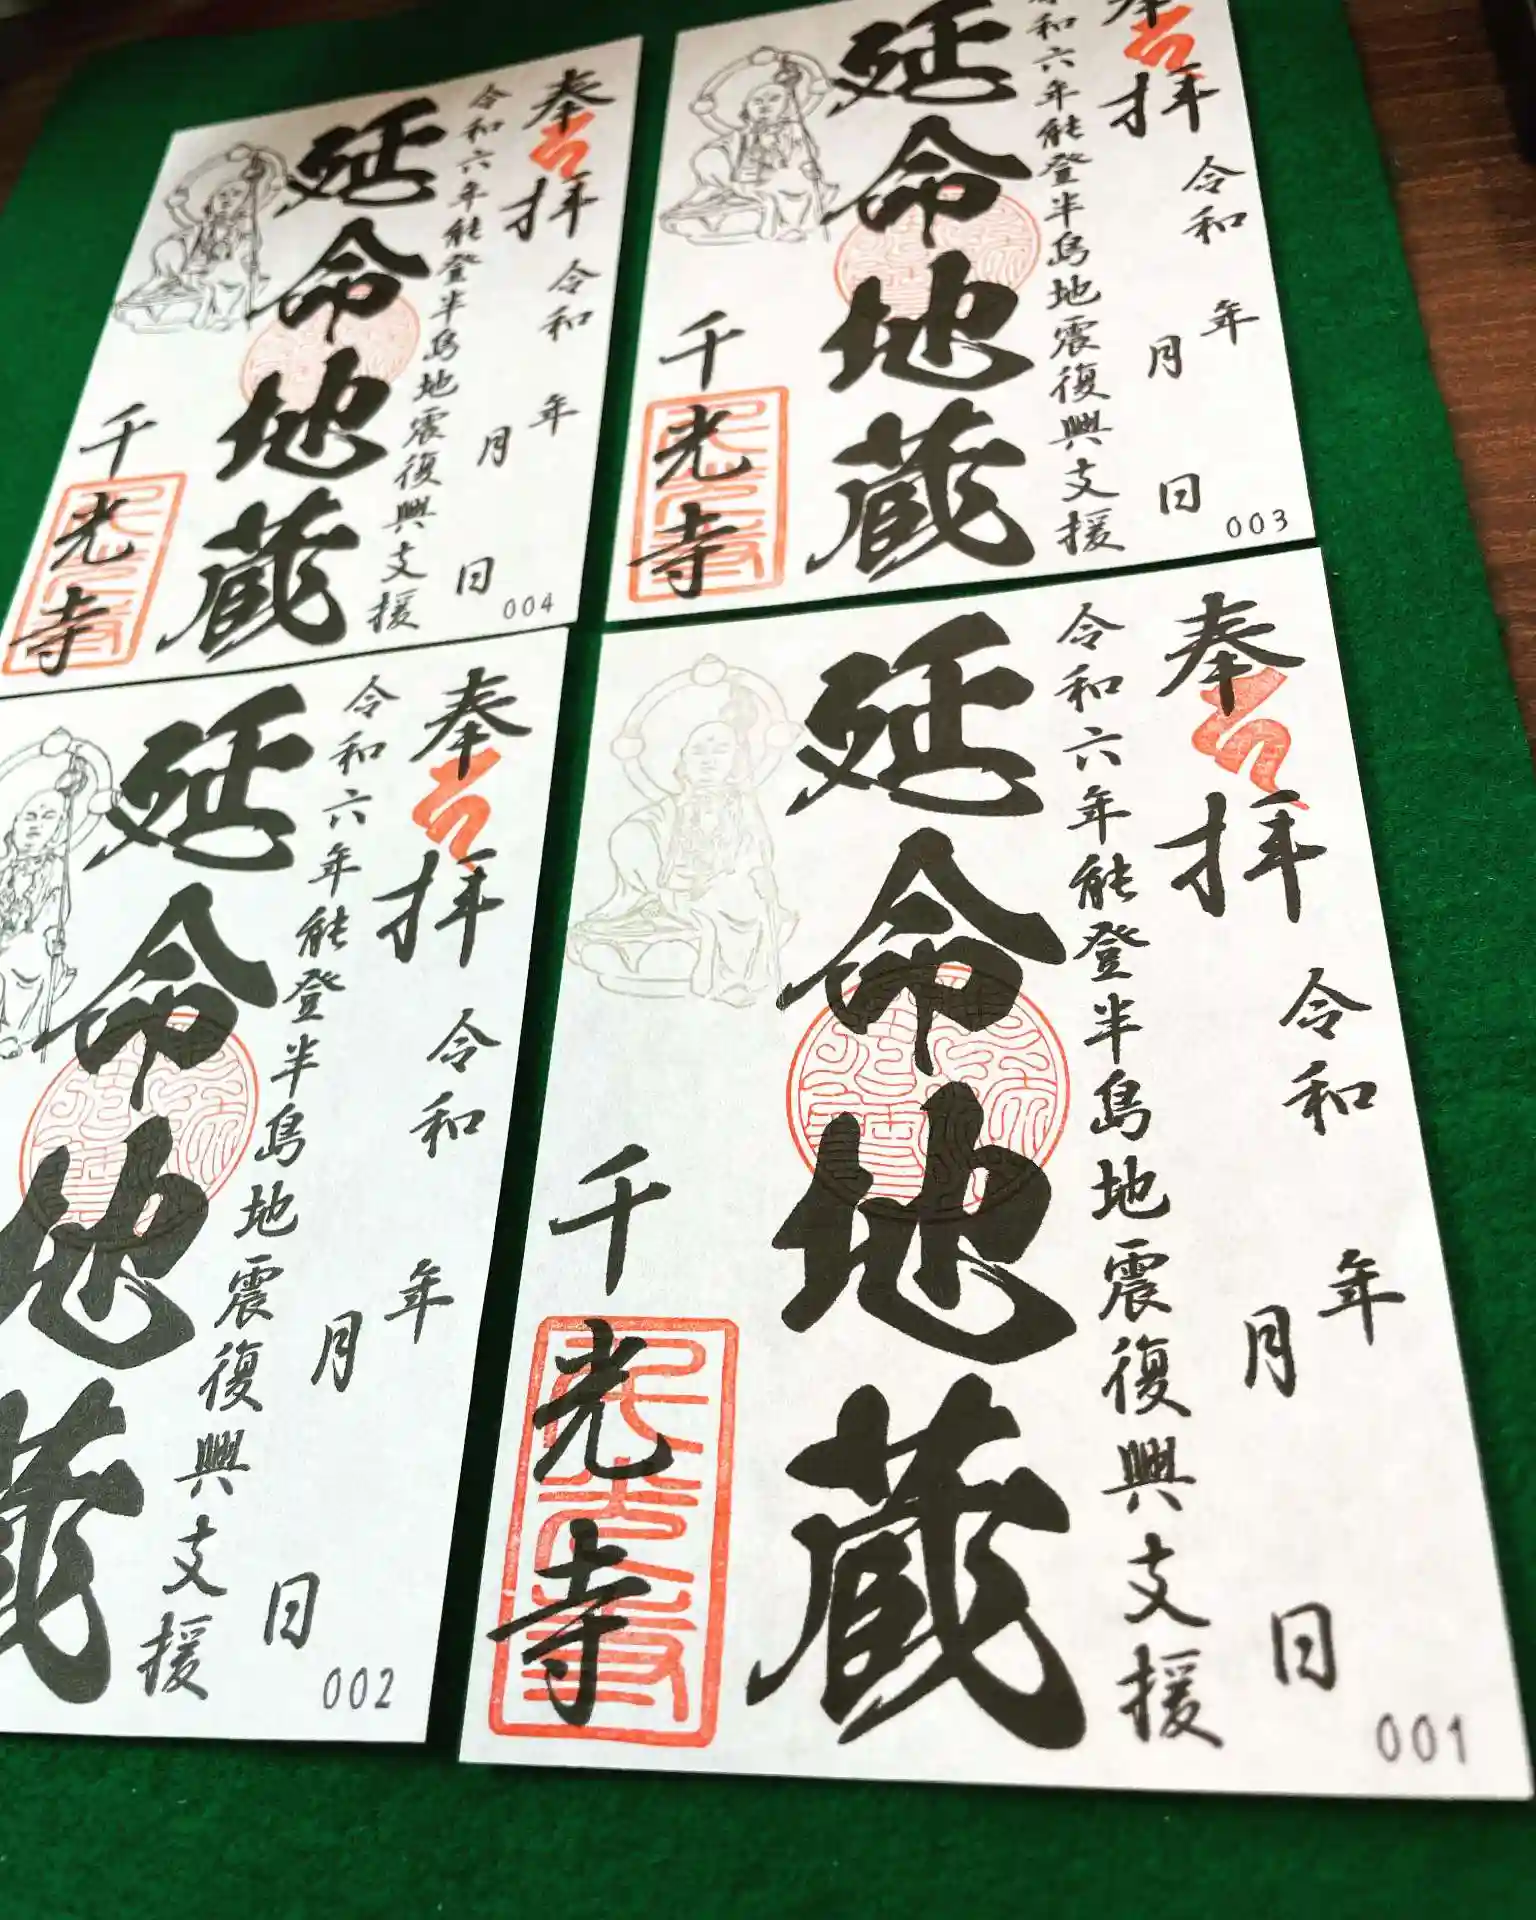 奉拝
令和 年 月 日
令和六年能登半島地震復興支援
延命地蔵
千光寺
004
奉拝
令和 年 月 日
令和六年能登半島地震復興支援
延命地蔵
千光寺
003
奉拝
令和 年 月 日
令和六年能登半島地震復興支援
延命地蔵
002
奉拝
令和 年 月 日
令和六年能登半島地震復興支援
延命地蔵
千光寺
001